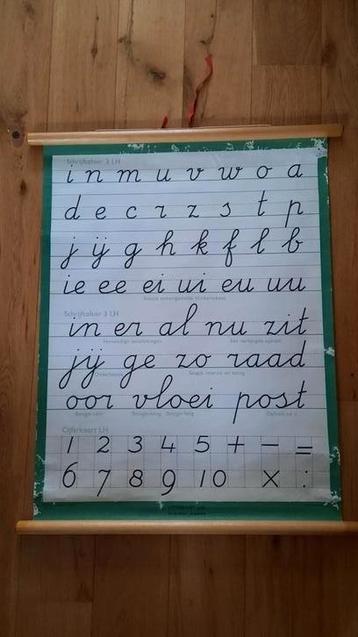 Schrijfkaart 3 LH
i n m u v w o a
d e c r z s t p
j ij g h k f l b
ie ee ei ui eu uu
Schrijfkaart 3 LH
in er al nu zit
jij ge zo raad
oor vloei post
Cijferkaart LH
1 2 3 4 5 + - =
6 7 8 9 10 x :